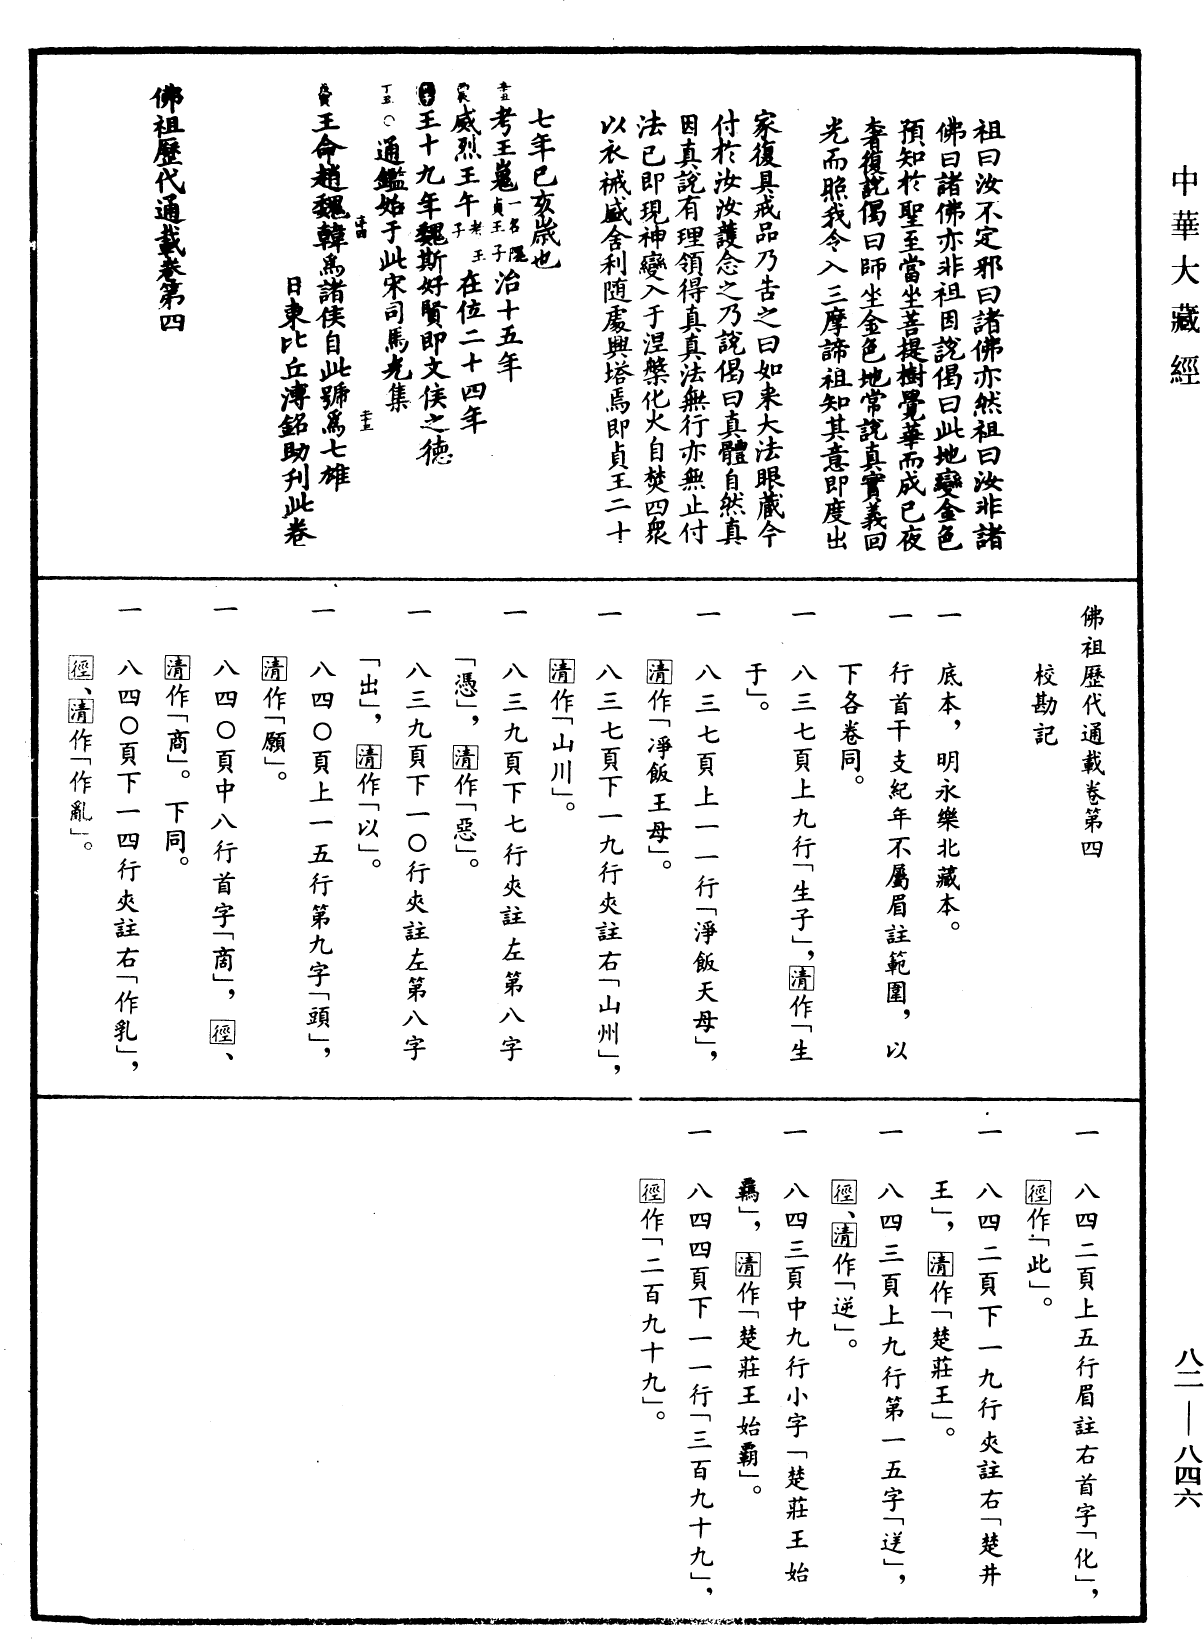 中華大藏經
祖曰汝不定邪曰諸佛亦然祖曰汝非諸
佛曰諸佛亦非祖因說偈曰此地變金色
預知於聖至當坐菩提樹覺華而成已夜
奢復說偈曰師坐金色地常說真實義回
光而照我令入三摩諦祖知其意即度出
家復具戒品乃告之曰如来大法眼藏今
付於汝汝護念之乃說偈曰真體自然真
因真說有理領得真真法無行亦無止付
法已即現神變入于涅槃化火自焚四衆
以衣裓盛舍利随處興塔焉即貞王二十
七年已亥歲也
辛丑考王嵬一名隗貞王子治十五年
丙辰威烈王午考王子在位二十四年
王十九年魏斯好賢即文侯之德
丁丑○通鑑始于此宋司馬光集
戊寅王命趙魏韓為諸侯自此號爲七雄
日東比丘溥銘助刋此卷
佛祖歷代通載卷第四
佛祖歷代通載卷第四
校勘記
一 底本，明永樂北藏本。
一 行首干支紀年不屬眉註範圍，以
下各卷同。
一 八三七頁上九行「生子」，清作「生
于」。
一 八三七頁上一一行「淨飯天母」，
清作「淨飯王母」。
一 八三七頁下一九行夾註右「山州」，
清作「山川」。
一 八三九頁下七行夾註左第八字
「憑」，清作「惡」。
一 八三九頁下一〇行夾註左第八字
「出」，清作「以」。
一 八四〇頁上一五行第九字「頭」，
清作「願」。
一 八四〇頁中八行首字「啇」，徑、
清作「商」。下同。
一 八四〇頁下一四行夾註右「作乳」，
徑、清作「作亂」。
一 八四二頁上五行眉註右首字「化」，
徑作「此」。
一 八四二頁下一九行夾註右「楚井
王」，清作「楚莊王」。
一 八四三頁上九行第一五字「送」，
徑、清作「逆」。
一 八四三頁中九行小字「楚莊王始
羈」，清作「楚莊王始霸」。
一 八四四頁下一一行「三百九十九」，
徑作「二百九十九」。
八二—八四六